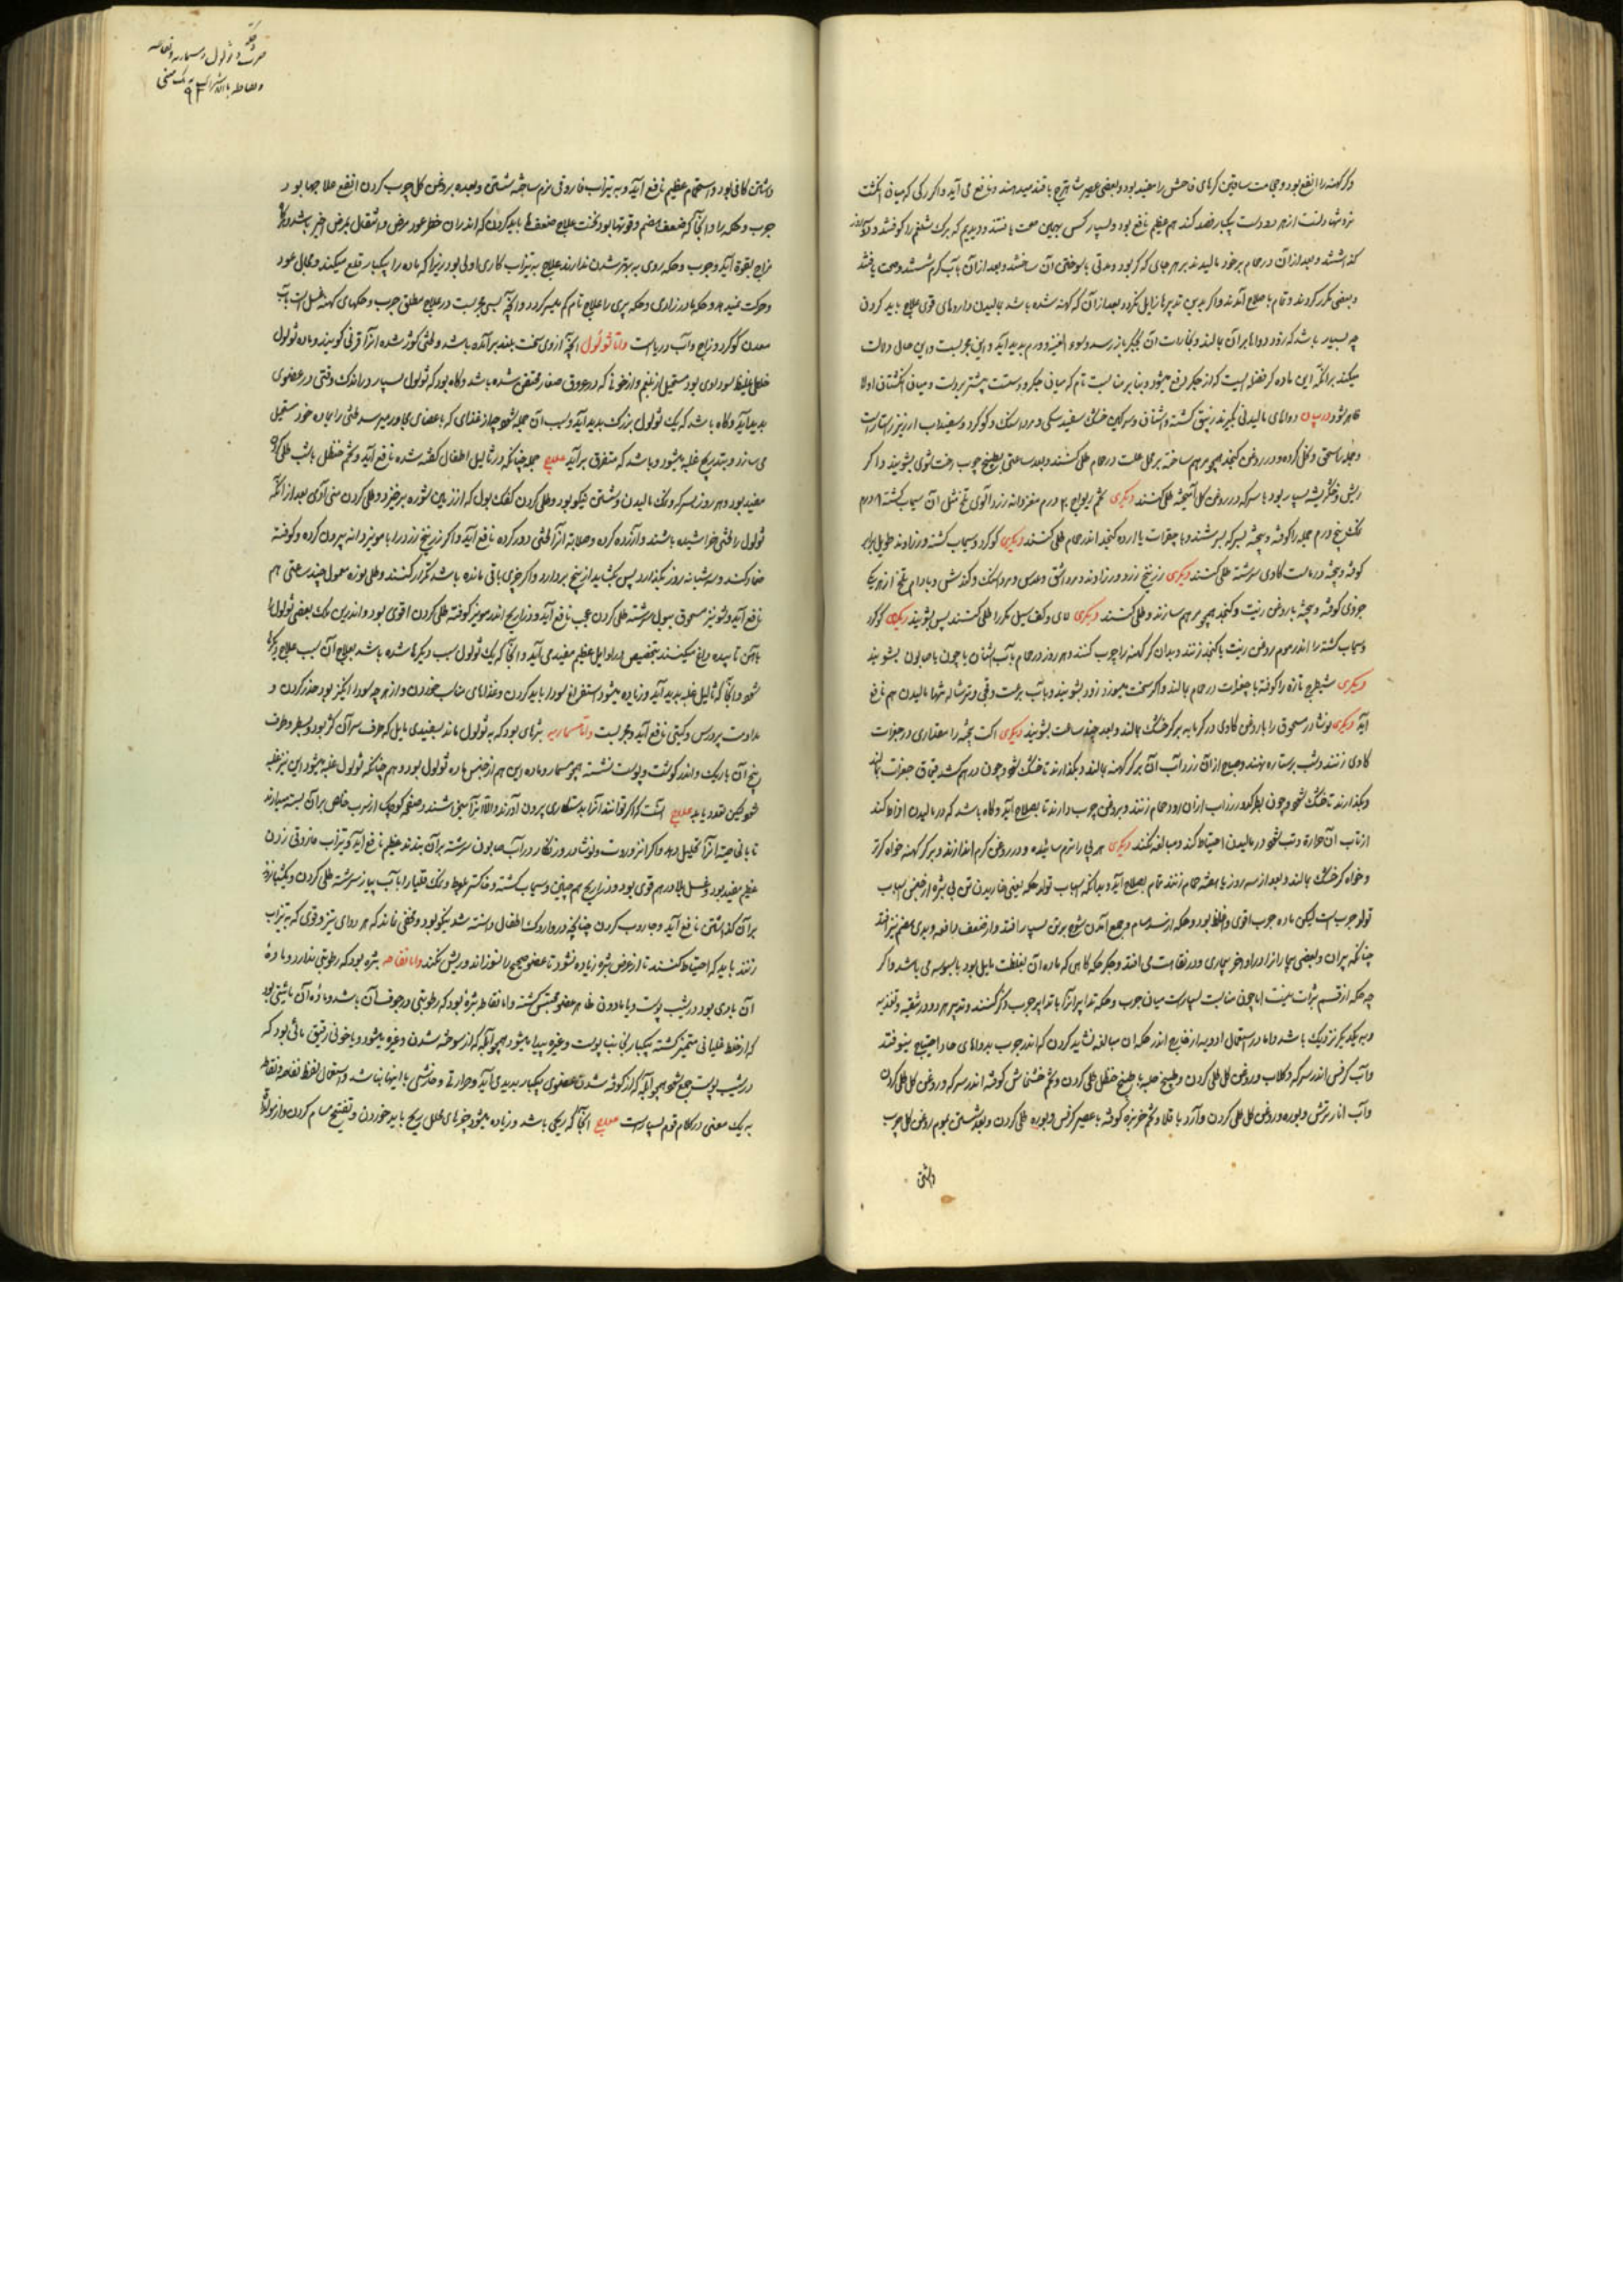 و کر کهنه را انفع بود و حجامت ساقین کرهای فاحش را مفید بود و بعضی عصیر شاهترج با قند میدهند و نافع می آید و اکر رکی که میان انکشت
هم عظیم نافع بود و بسیار کس بهمین صحت یافتند و دیدیم که برک شلغم را کوفتند و
کذاشتند و بعد از آن در حمام بر خود مالیدند بر هر جای که کر بود و مدتی با سوختن آن ساختند و بعد از آن بآب کرم شستند و صحت یافتند
و بعضی مکرر کردند و تمام با صلاح آمدند و اکر بدین تدبیرها زایل نکردد بعد از آن که کهنه شده باشد بمالیدن داروهای قوی علاج باید کردن
چه بسیار باشد که زود دواها بر آن بمالند و بخارات آن بجکر باز رسد و سوء القنیه و ورم پدید آید و این مجربست و این حال دلالت
میکند بر آنکه این ماده کر فضله ایست که از جکر دفع میشود و بنابر مناسبت تام که میان جکر و دستست پیشتر بر دست و میان انکشتان اولا
ظاهر شود در بیان دواهای مالیدنی بکیرند زیبق کشته و اشنان و سرکین خشک سفید سکی و مرداسنک و کوکرد و سفیداب ارزیز
و جمله را سحق و نخل کرده و در روغن کنجد همچو مرهم ساخته بر محل علت در حمام طلی کنند و بعد ساعتی بطبیخ چوب رخت شوی بشویند و اکر
ریش و خشکریشه بسیار بود با سرکه و در روغن کل آمیخته طلی کنند دیکری تخم ریواج ۲ درم مغز دانه زردآلوی تلخ مثل آن سیماب کشته ۱ درم
نمک پنج درم جمله را کوفته و بیخته بسرکه بسرشند و با جغرات یا ارده کنجد اندر حمام طلی کنند دیکری کوکرد و سیماب کشته و زراوند طویل برابر
کوفته و بیخته در ماست کاوی سرشته طلی کنند دیکری زرنیخ زرد و زراوند و مرداسنک و کندش و بادام تلخ از هر یک
جزوی کوفته و بیخته با روغن زیت و کنجد همچو مرهم سازند و طلی کنند دیکری لای و کف سیل مکرر طلی کنند پس بشویند دیکری کوکرد
و سیماب کشته را اندر موم روغن زیت یا کنجد زنند و بدان کر کهنه را چوب کنند و هر روز در حمام بآب اشنان یا چون یا صابون بشویند
دیکری شیطرج تازه را کوفته با جغرات در حمام بمالند و اکر سخت میسوزد زود بشویند و بآب
آید دیکری نوشادر مسحوق را با روغن کاوی در کرمابه بر کر خشک بمالند و بعد چند ساعت بشویند دیکری آهک پخته را مقداری در جغرات
کاوی زنند و شب بر ستاره نهند و صبح از آن زرد آب آن بر کر کهنه بمالند و بکذارند تا خشک شود و چون در هم کشد قیماق جغرات بمالند
و بکذارند تا خشک شود و چون حمام زنند و بروغن چوب دارند تا بصلاح آید و کاه باشد که در مالیدن افراط کند
از تاب آن حرارة و تب شود در مالیدن احتیاط کند و مبالغه نکنند دیکری هر بی را نرم سائیده و در روغن کرم اندازند و بر کر کهنه خواه کر تر
و خواه کر خشک بمالند و بعد از سه روز یا هفته حمام زنند تمام بصلاح آید و بدانکه اسباب تولد حکه یعنی خاریدن تن بی بثره از جنس اسباب
تولد جرب است لیکن ماده جرب اقوی و اغلظ بود و حکه از سدد مسام و جمع آمدن شوخ بر تن بسیار افتد و از ضعف دافعه و بدی هضم نیز افتد
چنانکه پیران و بعضی بیمارانرا در اواخر بیماری و در نقاهت می افتد و جکر حکه کاهی که ماده آن بغلظت مایل بود با یبوسه می باشد و اکر
چه حکه از قسم بثرات نیست اما چون مناسبت بسیارست میان جرب و حکه تدابیر آنرا با تدابیر جرب ذکر کنند و تدبیر هر دو در تنقیه و تغذیه
و به یکدیکر نزدیک باشد و اما در استعمال ادویه از خارج اندر حکه آن مبالغه نشاید کردن که اندر جرب بدواهای حاد احتیاج میوفتد
و آب کرفس اندر سرکه و کلاب و روغن کل طلی کردن و طبیخ حلبه با طبیخ حنظل طلی کردن و تخم خشخاش کوفته اندر سرکه و روغن کل طلی کردن
و آب انار ترش و بوره و روغن کل طلی کردن و آرد باقلا و تخم خربزه کوفته با عصیر کرفس و بوره طلی کردن و بعد شستن بموم روغن کل چوب
داشتن
ثولول و مسماریه و نفاخه
۹۴
داشتن کافی بود و استحمام عظیم نافع آید و به تیزاب فاروقی نرم ساخته شستن و بعده بروغن کل چوب کردن انفع علاجها بود
جرب و حکه را و آنجا که ضعف هضم و قوتها بود نخست علاج ضعفها باید کردن که اندر آن خطر عود مرض و انتقال بمرض اخر باشد
مزاج بقوة آید و جرب و حکه روی به بهتر شدن ندارند علاج به تیزاب کاری اولی بود زیرا که ماده را بیکبار قلع میکند و مجال عود
و حرکت نمیدهد و حکه مادر زادی و حکه پیری را علاج تام کم میسر کردد و آنچه بسی مجربست در علاج مطلق جرب و حکهای کهنه غسل است بآب
معدن کوکرد و زاج و آب دریاست و اما ثولول آنچه از وی سخت بلند برآمده باشد و لختی کوژ شده آنرا قرنی کویند و ماده ثولول
خلطی غلیظ سوداوی بود مستحیل از بلغم و از خونی که در عروق صغار محتقن شده باشد و کاه بود که ثولول بسیار در اندک وقتی در عضوی
پدید آید و کاه باشد که یک ثولول بزرک پدید آید و سبب آن جمله شود چه از غذای که باعضای مجاور میرسد لختی را بماده خود مستحیل
می سازد و بتدریج غلبه میشود و باشد که متفرق برآید علاج جمله چنانکه در ثآلیل اطفال کفته شده نافع آید و تخم حنظل با شب طلی کردن
مفید بود و هر روز بسرکه و نمک مالیدن و شستن نیکو بود و طلی کردن کفک بول که از زمین شوره برخیزد و طلی کردن منی آدمی بعد از آنکه
ثولول را لختی خراشیده باشند و آزرده کرده و صلابة آنرا لختی دور کرده نافع آید و اکر زرنیخ زرد را با مویز دانه بیرون کرده و کوفته
ضماد کنند و سه شبانه روز بکذارد پس بکشاید از بیخ بردارد و اکر چیزی باقی مانده باشد تکرار کنند و طلی نوره معمول چند ساعتی هم
نافع آید و شونیز مسحوق ببول سرشته طلی کردن عجب نافع آید و ذراریح اندر مویز کوفته طلی کردن اقوی بود و اندرین ملک بعضی ثولول را
بآهن تابیده داغ میکنند بتخصیص در اوایل عظیم مفید می آید و آنجا که یک ثولول سبب دیکرها شده باشد بعلاج آن سبب علاج دیکرها
شود و آنجا که ثآلیل غلبه پدید آید و زیاده میشود استفراغ سودا باید کردن و غذاهای مناسب خوردن و از هر چه سودا انکیز بود حذر کردن و
مداومت نافع آید و مجربست و اما مسماریه بثرهای بود که به ثولول ماند بسفیدی مایل که طرف سر آن کژ بود
بیخ آن باریک و اندر کوشت و پوست نشسته همچو مسمار و ماده این هم از جنس ماده ثولول بود و هم چنانکه ثولول غلبه میشود این نیز غلبه
شود علاج آنست که اکر توانند آنرا بدستکاری بیرون آورند و الا
تا آنرا تحلیل دهد و اکر انزروت و نوشادر و زنکار در آب صابون سرشته بر آن بندند عظیم نافع آید و تیزاب فاروقی زدن
عظیم مفید بود و عسل بلادر هم قوی بود و ذراریح هم چنین و سیماب کشته و خاکستر بلوط و نمک قلیا را با آب پیاز سرشته طلی کردن
بر آن کذاشتن نافع آید و جاروب کردن چنانچه در اطفال دانسته شد نیکو بود و مخفی نماند که هر دوای تیز و قوی که به تیزاب
زنند باید که احتیاط کنند تا از عرض بثره زیاده نشود تا عضو صحیح را نسوزاند و ریش نکند و اما نفاخه بثره بود که رطوبتی ندارد و مادهٔ
آن بادی بود در شیب پوست و یا مادون ظاهر عضو محتبس کشته و اما نفاطه بثرهٔ بود که رطوبتی در جوف آن باشد و مادهٔ آن مائیتی بود
که از خلط غلیانی متمیز کشته بیکبار بجانب پوست و غیره پیدا میشود همچو آبله که از سوخته شدن و غیره میشود و یا خونی رقیق مائی بود که
در شیب پوست جمع شود همچو آبله که از کوفته شدن عضوی بیکبار پدید می آید و حرارتی و خارشی با اینها نباشد و استعمال لفظ نفاخه و نفاطه
به یک معنی در کلام قوم بسیارست علاج آنجا که ریحی باشد و زیاده میشود چیزهای محلل ریح باید خوردن و تفتیح مسام کردن و از مولدات